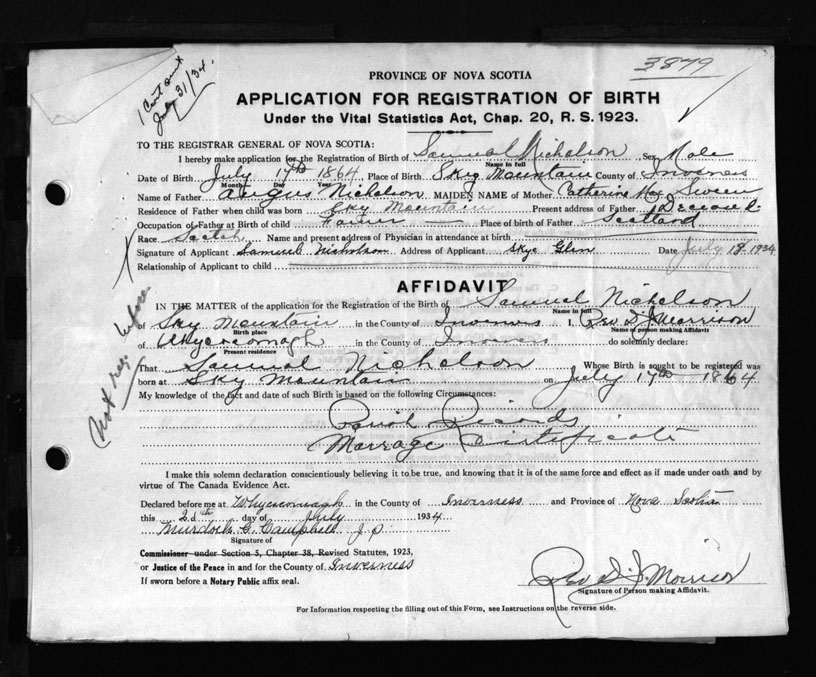 3879
1 Cert sent
July 31/34.
PROVINCE OF NOVA SCOTIA
APPLICATION FOR REGISTRATION OF BIRTH
Under the Vital Statistics Act, Chap. 20, R. S. 1923.
TO THE REGISTRAR GENERAL OF NOVA SCOTIA:
I hereby make application for the Registration of Birth of Samuel Nicholson Sex Male
Name in full
Date of Birth July 17th 1864 Place of Birth Sky Mountain County of Inverness
Month Day Year
Name of Father Angus Nicholson MAIDEN NAME of Mother Catherine Mac Sween
Residence of Father when child was born Sky Mountain Present address of Father Deceased
Occupation of Father at Birth of child Farmer Place of birth of Father Scotland
Race Scotch Name and present address of Physician in attendance at birth
Signature of Applicant Samuel Nicholson Address of Applicant Skye Glen Date July 18 1934
Relationship of Applicant to child
Not reg. before
AFFIDAVIT
IN THE MATTER of the application for the Registration of the Birth of Samuel Nicholson
Name in full
of Sky Mountain in the County of Inverness I, Rev D J Morrison
Birth place Name of person making Affidavit
of Whycocomagh in the County of Inverness do solemnly declare:
Present residence
That Samuel Nicholson Whose Birth is sought to be registered was
born at Sky Mountain on July 17th 1864
My knowledge of the fact and date of such Birth is based on the following Circumstances:
Parish Records
Marrage Cirtificate
I make this solemn declaration conscientiously believing it to be true, and knowing that it is of the same force and effect as if made under oath and by
virtue of The Canada Evidence Act.
Declared before me at Whycocomagh in the County of Inverness and Province of Nova Scotia
this day of July 1934
Murdoch G. Campbell J. P.
Signature of
Commissioner under Section 5, Chapter 38, Revised Statutes, 1923,
or Justice of the Peace in and for the County of Inverness
If sworn before a Notary Public affix seal.
Rev D. J. Morrison
Signature of Person making Affidavit.
For Information respecting the filling out of this Form, see Instructions on the reverse side.